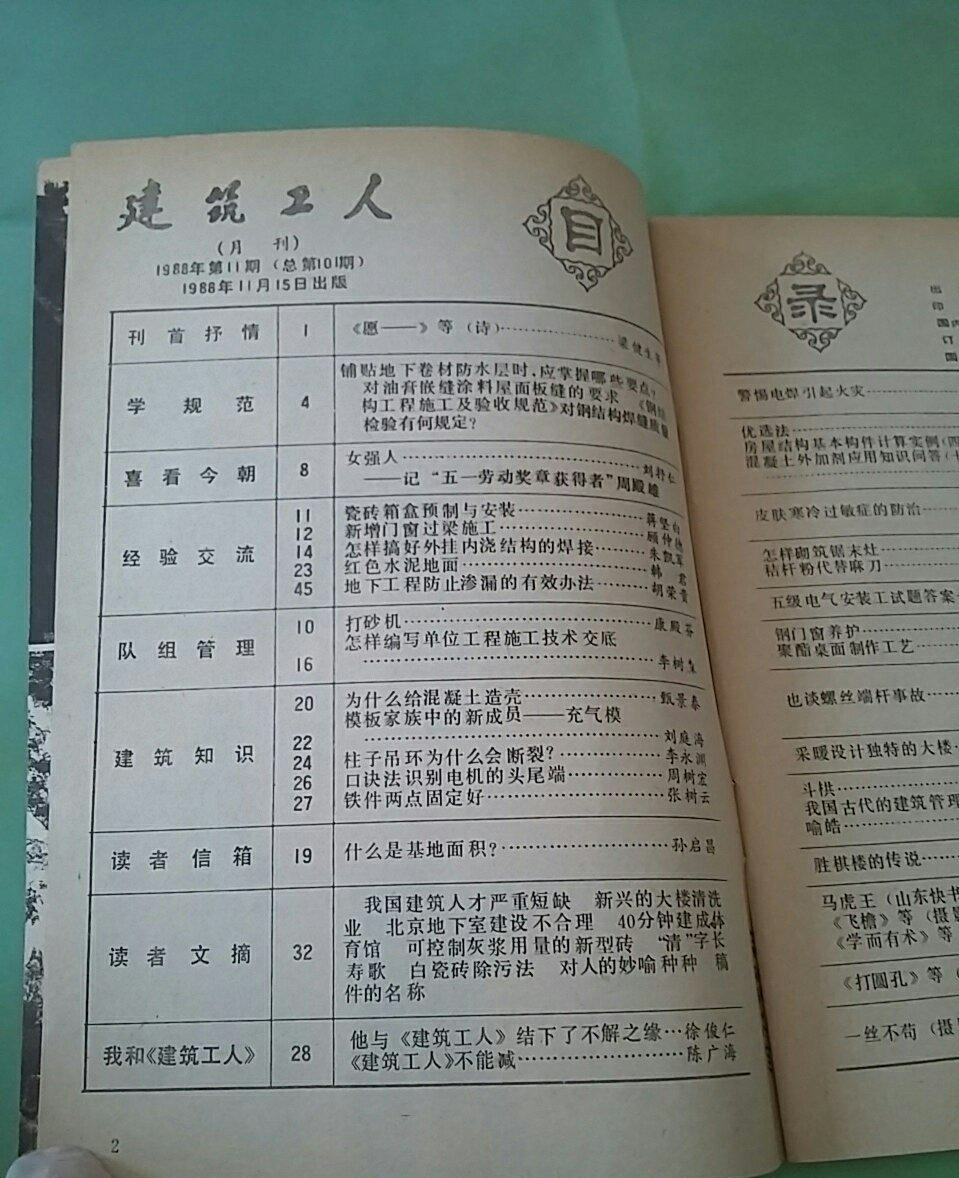 建筑工人
(月 刊)
1988年第11期(总第101期)
1988年11月15日出版
目
刊首抒情 1 《愿——》等(诗)……梁健生等
学规范 4 铺贴地下卷材防水层时,应掌握哪些要点?
对油膏嵌缝涂料屋面板缝的要求 《钢结
构工程施工及验收规范》对钢结构焊缝质量
检验有何规定?
喜看今朝 8 女强人……刘舒仁
——记“五一劳动奖章获得者”周殿雄
经验交流
11 瓷砖箱盒预制与安装……蒋坚
12 新增门窗过梁施工……顾仲
14 怎样搞好外挂内浇结构的焊接……朱凯军
23 红色水泥地面……韩 君
45 地下工程防止渗漏的有效办法……胡荣贵
队组管理
10 打砂机……康殿芬
怎样编写单位工程施工技术交底
16 ……李树
建筑知识
20 为什么给混凝土造壳……甄景泰
模板家族中的新成员——充气模
22 ……刘庭海
24 柱子吊环为什么会断裂?……李永渊
26 口诀法识别电机的头尾端……周树宏
27 铁件两点固定好……张树云
读者信箱 19 什么是基地面积?……孙启昌
读者文摘 32 我国建筑人才严重短缺 新兴的大楼清洗
业 北京地下室建设不合理 40分钟建成体
育馆 可控制灰浆用量的新型砖 “清”字长
寿歌 白瓷砖除污法 对人的妙喻种种 稿
件的名称
我和《建筑工人》 28 他与《建筑工人》结下了不解之缘…徐俊仁
《建筑工人》不能减……陈广海
2
录
出
印
国内
订
国
警惕电焊引起火灾……
优选法……
房屋结构基本构件计算实例(四
混凝土外加剂应用知识问答(十
……
皮肤寒冷过敏症的防治……
怎样砌筑锯末灶……
秸杆粉代替麻刀……
五级电气安装工试题答案
钢门窗养护……
聚酯桌面制作工艺……
也谈螺丝端杆事故……
采暖设计独特的大楼
斗栱……
我国古代的建筑管理
喻皓……
胜棋楼的传说……
马虎王(山东快书
《飞檐》等(摄影
《学而有术》等
《打圆孔》等(
一丝不苟(摄影